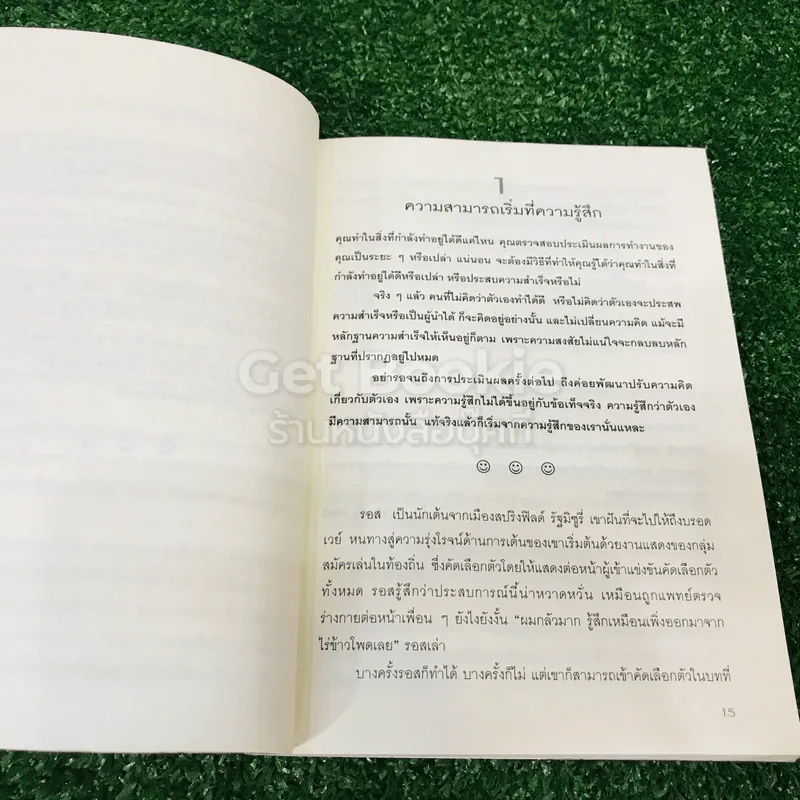 1
ความสามารถเริ่มที่ความรู้สึก
คุณทำในสิ่งที่กำลังทำอยู่ได้ดีแค่ไหน คุณตรวจสอบประเมินผลการทำงานของ
คุณเป็นระยะ ๆ หรือเปล่า แน่นอน จะต้องมีวิธีที่ทำให้คุณรู้ได้ว่าคุณทำในสิ่งที่
กำลังทำอยู่ได้ดีหรือเปล่า หรือประสบความสำเร็จหรือไม่
จริง ๆ แล้ว คนที่ไม่คิดว่าตัวเองทำได้ดี หรือไม่คิดว่าตัวเองจะประสพ
ความสำเร็จหรือเป็นผู้นำได้ ก็จะคิดอยู่อย่างนั้น และไม่เปลี่ยนความคิด แม้จะมี
หลักฐานความสำเร็จให้เห็นอยู่ก็ตาม เพราะความสงสัยไม่แน่ใจจะกลบลบหลัก
ฐานที่ปรากฏอยู่ไปหมด
Get Bookie
อย่ารอจนถึงการประเมินผลครั้งต่อไป ถึงค่อยพัฒนาปรับความคิด
เกี่ยวกับตัวเอง เพราะความรู้สึกไม่ได้ขึ้นอยู่กับข้อเท็จจริง ความรู้สึกว่าตัวเอง
มีความสามารถนั้น แท้จริงแล้วก็เริ่มจากความรู้สึกของเรานั่นแหละ
ร้านหนังสือบุ๊คกี้
☺ ☺ ☺
รอส เป็นนักเต้นจากเมืองสปริงฟิลด์ รัฐมิซูรี่ เขาฝันที่จะไปให้ถึงบรอด
เวย์ หนทางสู่ความรุ่งโรจน์ด้านการเต้นของเขาเริ่มต้นด้วยงานแสดงของกลุ่ม
สมัครเล่นในท้องถิ่น ซึ่งคัดเลือกตัวโดยให้แสดงต่อหน้าผู้เข้าแข่งขันคัดเลือกตัว
ทั้งหมด รอสรู้สึกว่าประสบการณ์นี้น่าหวาดหวั่น เหมือนถูกแพทย์ตรวจ
ร่างกายต่อหน้าเพื่อน ๆ ยังไงยังงั้น “ผมกลัวมาก รู้สึกเหมือนเพิ่งออกมาจาก
ไร่ข้าวโพดเลย” รอสเล่า
บางครั้งรอสก็ทำได้ บางครั้งก็ไม่ แต่เขาก็สามารถเข้าคัดเลือกตัวในบทที่
15